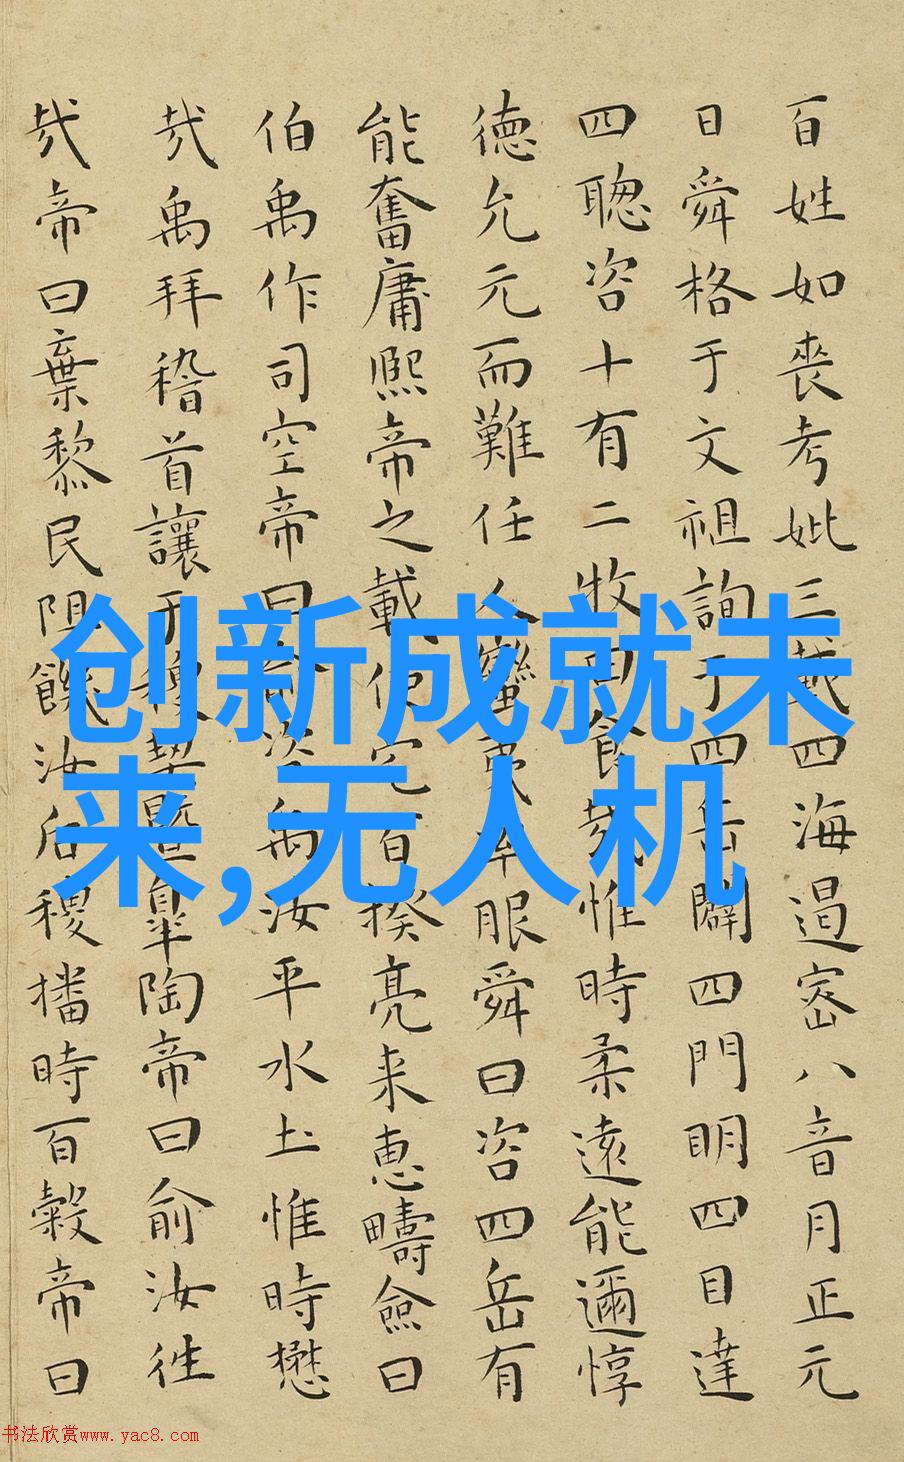 百姓如喪考妣三載四海遏密八音月正元
日舜格于文祖詢于四岳闢四門明四目達
四聰咨十有二牧曰食哉惟時柔遠能邇惇
徳允元而難任人蠻夷率服舜曰咨四岳有
能奮庸熙帝之載使宅百揆亮采惠疇僉曰
伯禹作司空帝曰俞咨禹汝平水土惟時懋
哉禹拜稽首讓于稷契暨皐陶帝曰俞汝往
哉帝曰棄黎民阻饑汝后稷播時百穀帝曰
创新成就未
来,无人机
书法欣赏www.yac8.com